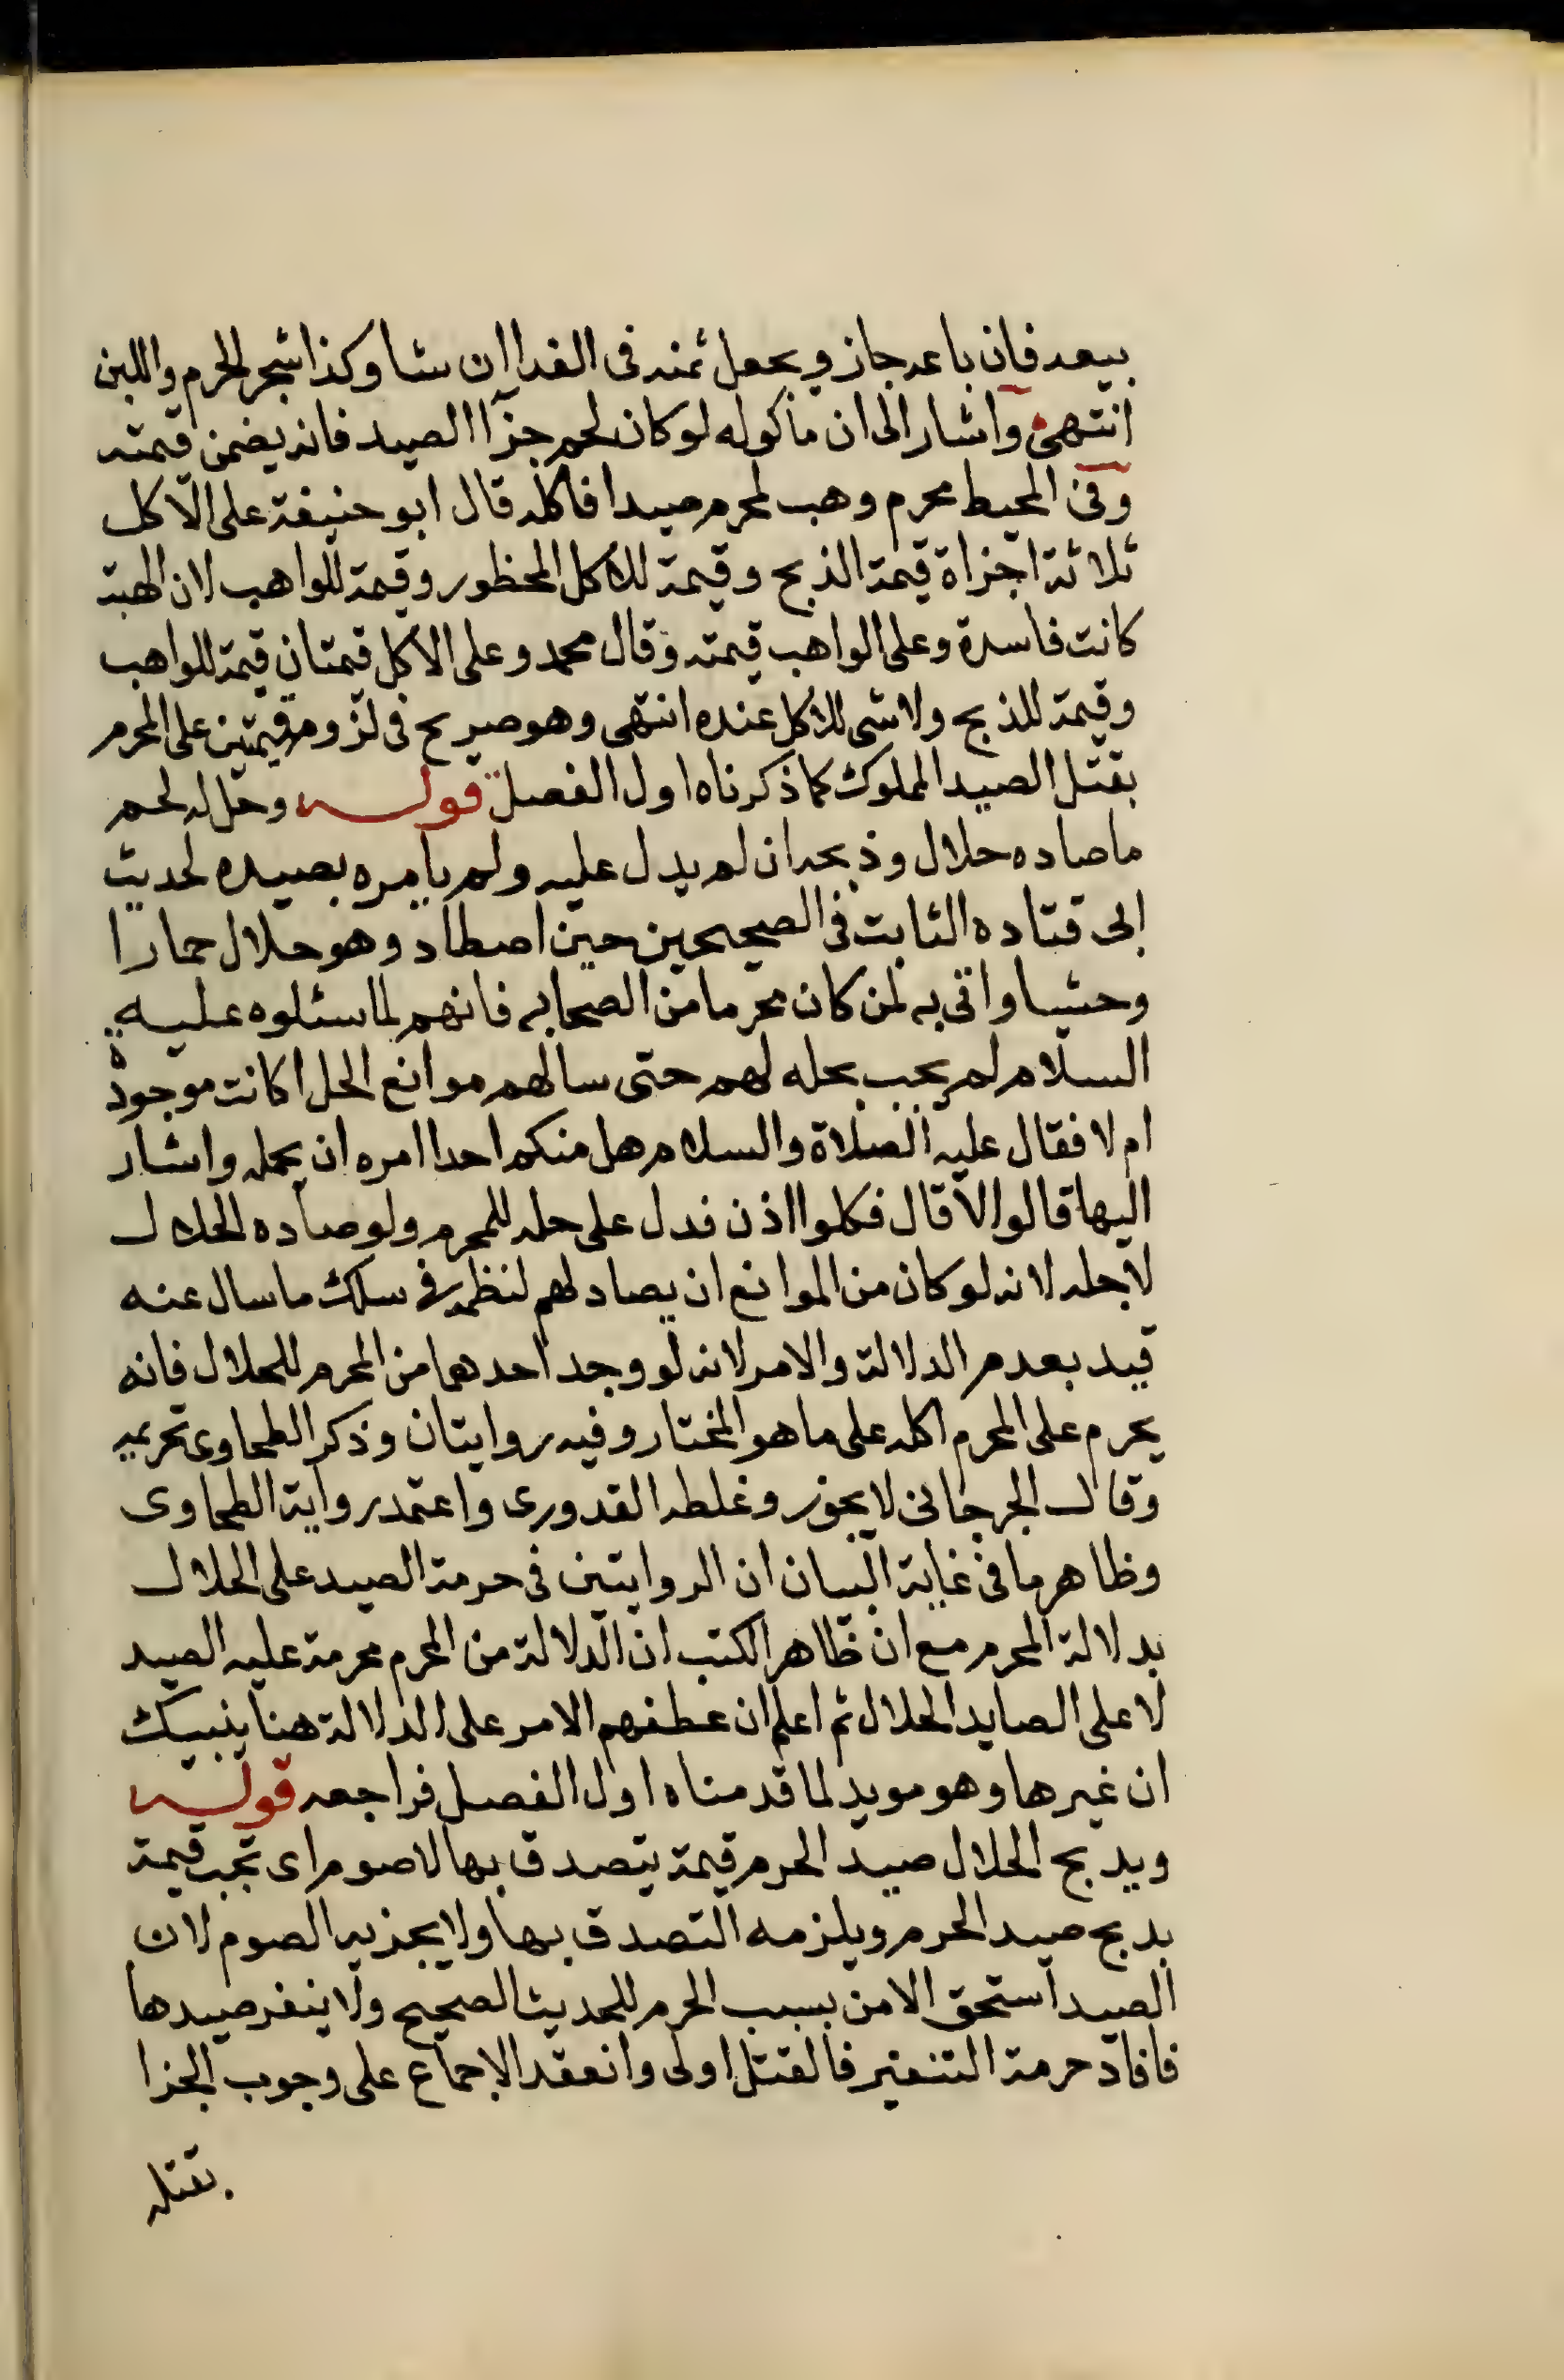 بيعه فان باعه جاز ويجعل ثمنه فى الفدا ان شا وكذا شجر الحرم واللبن
انتهى واشار الى ان مأكوله لو كان لحم جزآ الصيد فانه يضمن قيمته
وفى المحيط محرم وهب لمحرم صيدا فاكله قال ابو حنيفة على الآكل
ثلاثة اجزاة قيمة الذبح وقيمة للاكل المحظور وقيمة للواهب لان الهبة
كانت فاسدة وعلى الواهب قيمته وقال محمد وعلى الاكل قيمتان قيمة للواهب
وقيمة للذبح ولا شى للاكل عنده انتهى وهو صريح فى لزوم قيمتين على المحرم
بقتل الصيد المملوك كما ذكرناه اول الفصل قوله وحل له لحم
ما صاده حلال وذبحه ان لم يدل عليه ولم يامره بصيده لحديث
ابى قتاده الثابت فى الصحيحين حين اصطاد وهو حلال حمارا
وحشيا واتى به لمن كان محرما من الصحابه فانهم لما سئلوه عليه
السلام لم يجب بحله لهم حتى سالهم موانع الحل اكانت موجودة
ام لا فقال عليه الصلاة والسلام هل منكم احدا امره ان يحمله واشار
اليها قالوا لا قال فكلوا اذن فدل على حله للمحرم ولو صاده الحلال
لاجله لانه لو كان من الموانع ان يصاد لهم لنظمه فى سلك ما سال عنه
قيد بعدم الدلالة والامر لانه لو وجد احدهما من المحرم للحلال فانه
يحرم على المحرم اكله على ما هو المختار وفيه روايتان وذكر الطحاوى تحريمه
وقال الجرجانى لا يجوز وغلطه القدورى واعتمد رواية الطحاوى
وظاهر ما فى غاية البيان ان الروايتين فى حرمة الصيد على الحلال
بدلالة المحرم مع ان ظاهر الكتب ان الدلالة من المحرم محرمة عليه الصيد
لا على الصايد الحلال ثم اعلم ان عطفهم الامر على الدلالة هنا ينبيك
ان غيرها وهو مويد لما قدمناه اول الفصل فراجعه قوله
ويدبح الحلال صيد الحرم قيمة يتصدق بها لا صوم اى تجب قيمة
بدبح صيد الحرم ويلزمه التصدق بها ولا يجزيه الصوم لان
الصيد استحق الامن بسبب الحرم للحديث الصحيح ولا ينفر صيدها
فافاد حرمة التنفير فالقتل اولى وانعقد الاجماع على وجوب الجزا
بقتله